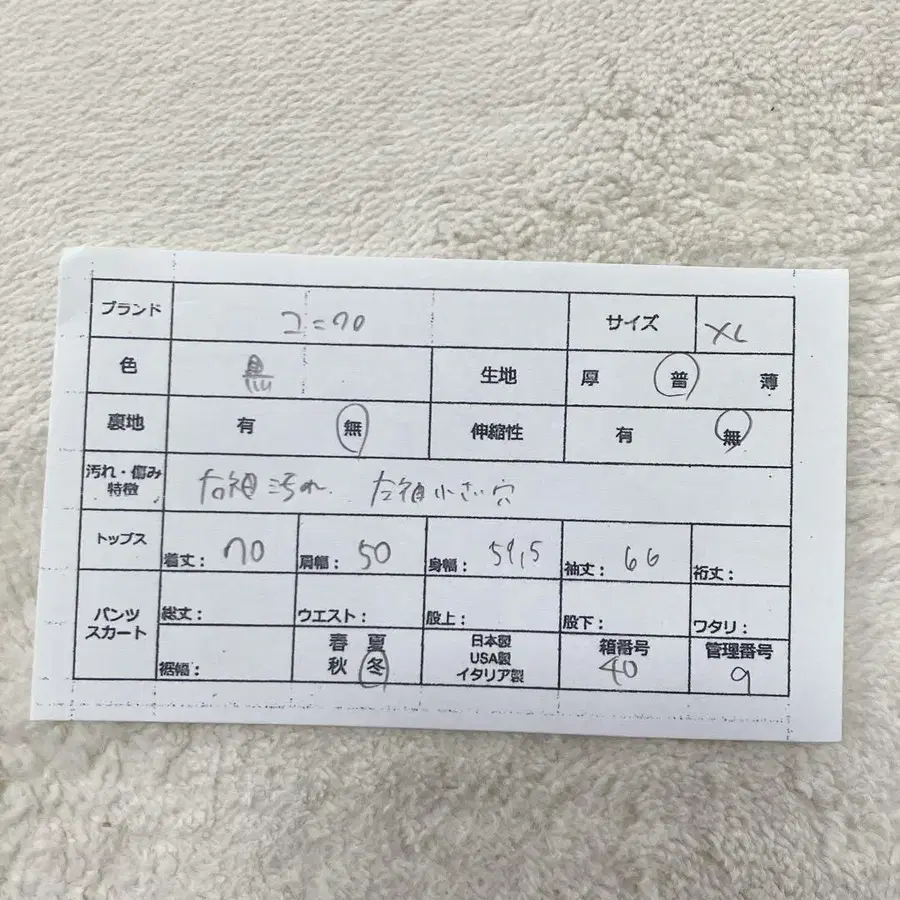 ブランド ユニクロ サイズ XL
色 黒 生地 厚 普 薄
裏地 有 無 伸縮性 有 無
汚れ・傷み
特徴 右袖汚れ、左袖小さい穴
トップス 着丈： 70 肩幅： 50 身幅： 59,5 袖丈： 66 裄丈：
パンツ
スカート
総丈： ウエスト： 股上： 股下： ワタリ：
裾幅：
春 夏
秋 冬
日本製
USA製
イタリア製
箱番号
40
管理番号
9